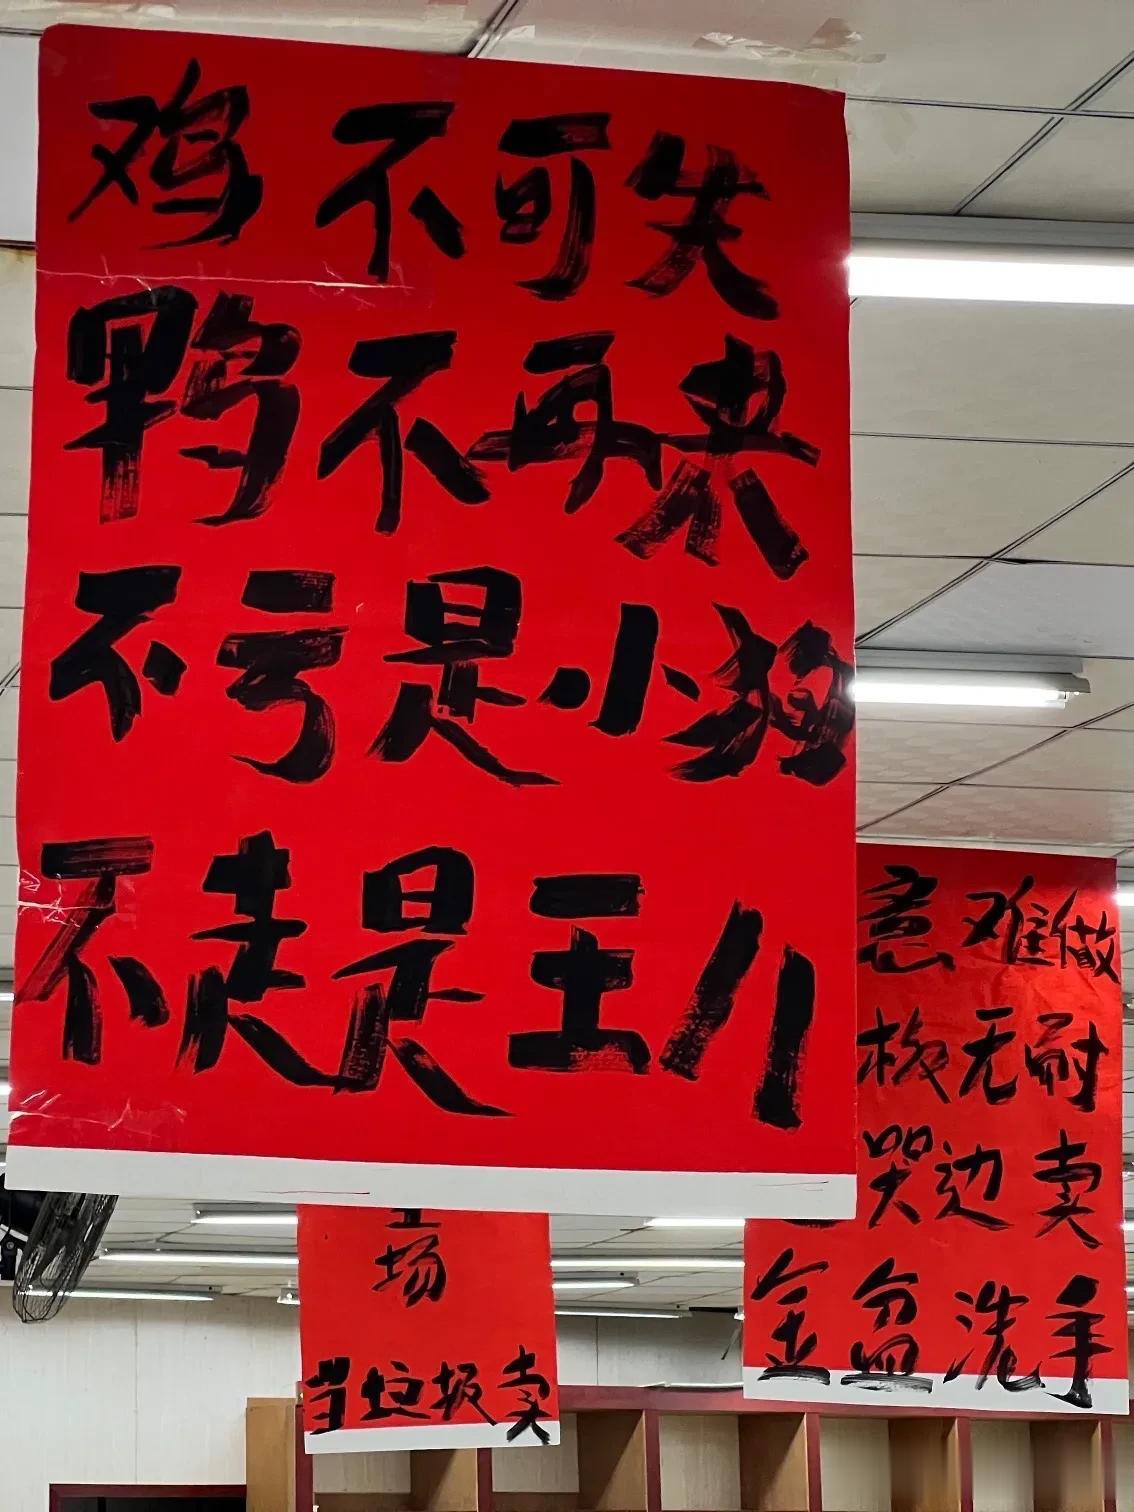 鸡不可失
鸭不再来
不亏是小狗
不走是王八
意难做
板无耐
哭边卖
金盆洗手
场
当垃圾卖